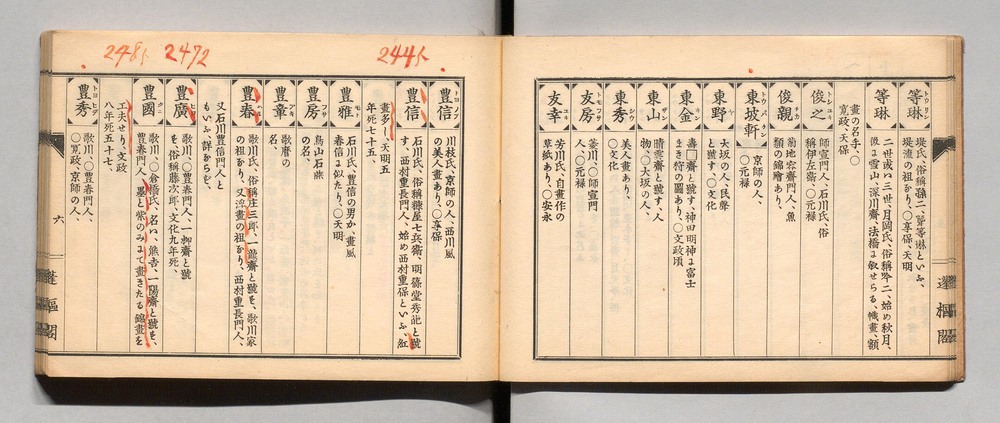 等琳
トウリン
堤氏、俗稱孫二、二世等琳といふ、
堤流の祖なり、〇享保、天明
二世或ハ三世、月岡氏、俗稱吟二、始め秋月、
後は雪山、深川齋、法橋に敘せらる、幟畫、額
畫の名手、〇
寛政、天保
俊之
トシユキ
師宣門人、石川氏、俗
稱伊左衛、〇元祿
俊親
チカ
菊地容齋門人、魚
類の錦繪あり、
東坡軒
トウバケン
京師の人、
〇元祿
東野
ヤ
大坂の人、民聲
と號す、〇文化
東金
キン
壽□齋と號す、神田明神に富士
まき狩の圖あり、〇文政頃
東山
サン
晴雲齋と號す、人
物、〇大坂の人、
東秀
シウ
美人畫あり、
〇文化
友房
トモフサ
菱川、〇師宣門
人、〇元祿
友幸
ユキ
芳川氏、自畫作の
草紙あり、〇安永
蓬樞閣
2445
2472
2485
豊信
トヨノブ
川枝氏、京師の人、西川風
の美人畫あり、〇享保
豊信
石川氏、俗稱糠屋七兵衛、明篠堂秀葩と號
す、西村重長門人、始め西村重保といふ、紅
畫多し、天明五
年死七十五、
豊雅
モト
石川氏、豊信の男か、畫風
春信に似たり、〇天明
豊房
フサ
鳥山石燕
の名、
豊章
アキ
歌麿の
名、
豊春
ハル
歌川氏、俗稱庄三郎、一龍齋と號を、歌川家
の祖なり、又浮畫の祖なり、西村重長門人、
又石川豊信門人と
もいふ、詳ならむ、
豊廣
ヒロ
歌川、〇豊春門人、一柳齋と號
を、俗稱藤次郎、文化九年死、
豊國
クニ
歌川、〇倉橋氏、名ハ、熊吉、一陽齋と號を、
豊春門人、墨と紫のみにて畫きたる錦畫を
工夫せり、文政
八年死五十七、
豊秀
トヨヒデ
歌川、〇豊春門人、
〇寛政、京師の人、
六
蓬樞閣